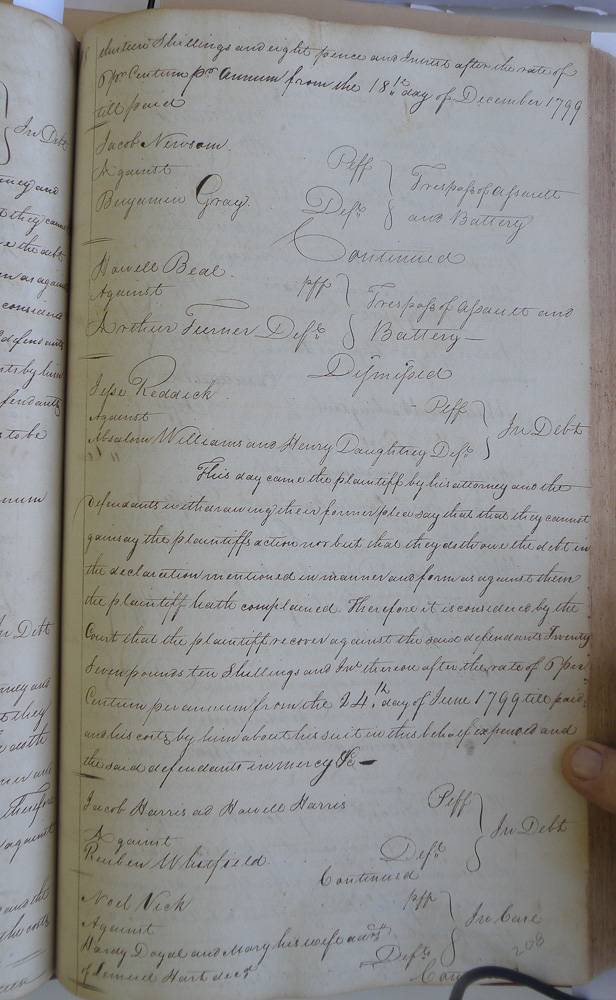 In Debt
ney and
they came
the debt
as again
considered
defendants
by him
fendants
to be
num
In Debt
ney and
they
doth
Therefore
against
and the
the costs
thirteen Shillings and eight pence and Interest after the rate of
6 pr Centum pr annum from the 18th day of December 1799
till paid
Jacob Newsom. Plff
Against } Trespass of assault
Benjamin Gray. Deft and Battery
Continued
Howell Beal. plff
Against } Trespass of assault and
Arthur Turner Deft Battery—
Dismissed
Jesse Reddick Plaff
Against } In Debt
Absalom Williams and Henry Daughtrey Defts
This day came the plaintiff by his attorney and the
defendants withdrawing their former plea say that that they cannot
gainsay the plaintiffs action nor but that they doth owe the debt in
the declaration mentioned in manner and form as against them
the plaintiff hath complained. Therefore it is considered by the
Court that the plaintiff recover against the said defendants Twenty
Seven pounds ten Shillings and Int thereon after the rate of 6 per
Centum per annum from the 24th day of June 1799 till paid
and his costs by him about his suit in this behalf expended and
the said defendants in mercy &c—
Jacob Harris ad Howell Harris Plff
Against } In Debt
Reuben Whitfield Deft
Continued
Noel Vick plff
Against } In Case
Hardy Doyal and Mary his wife admx Defts
of Lemuel Hart decd
208